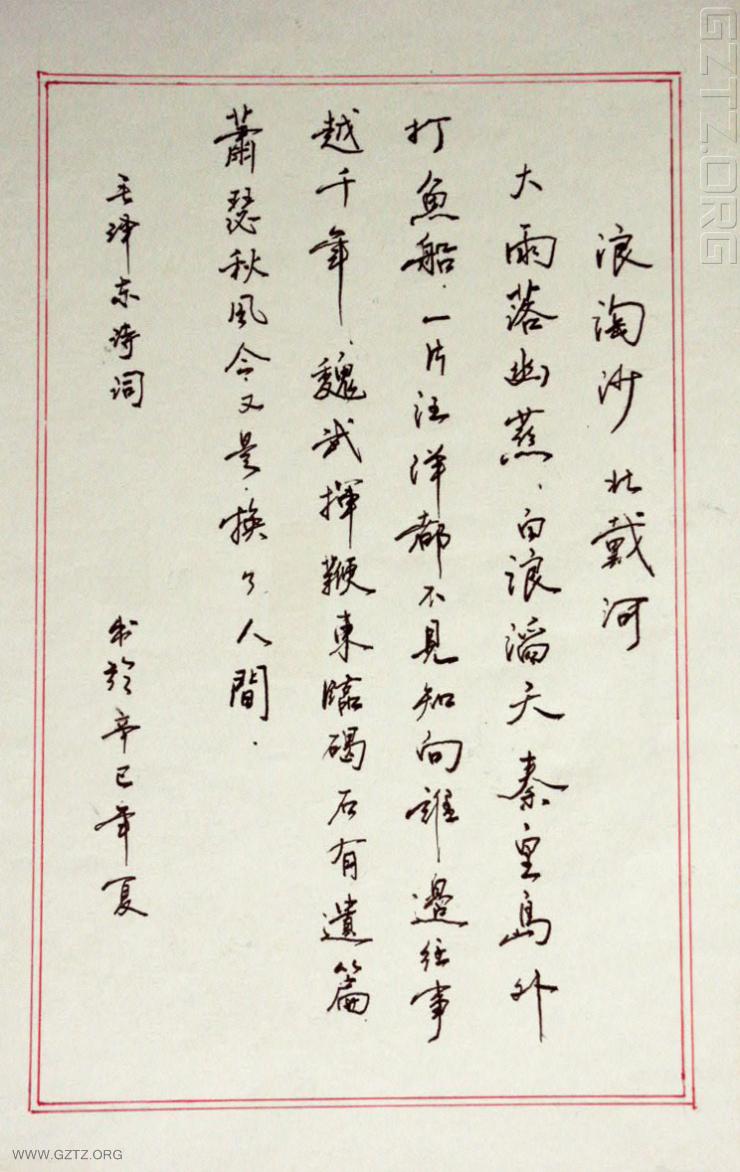 浪淘沙 北戴河
大雨落幽燕、白浪滔天秦皇島外
打魚船．一片汪洋都不見知向誰邊往事
越千年、魏武揮鞭東臨碣石有遺篇
蕭瑟秋風今又是．換了人間．
毛泽东诗词
书於辛巳年夏
GZTZ.ORG
WWW.GZTZ.ORG